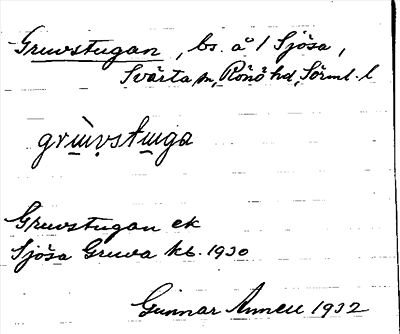 Gruvstugan, bs. å 1 Sjösa,
Svärta sn, Rönö hd, Sörml. l
grɯ̀vstɯga
Gruvstugan ek
Sjösa Gruva kb. 1930
Gunnar Annell 1932